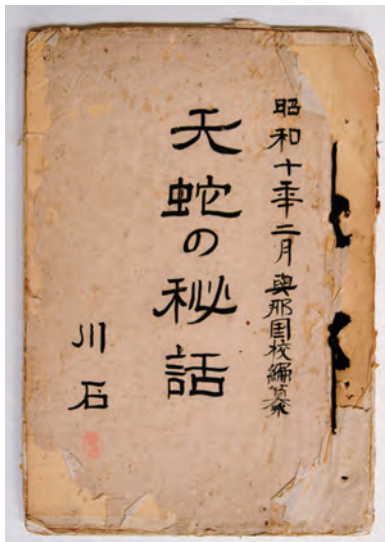 昭和十年二月 與那国校編纂
天蛇の秘話
川石